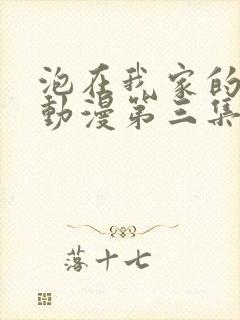 泡在我家的
動漫第三集
落十七